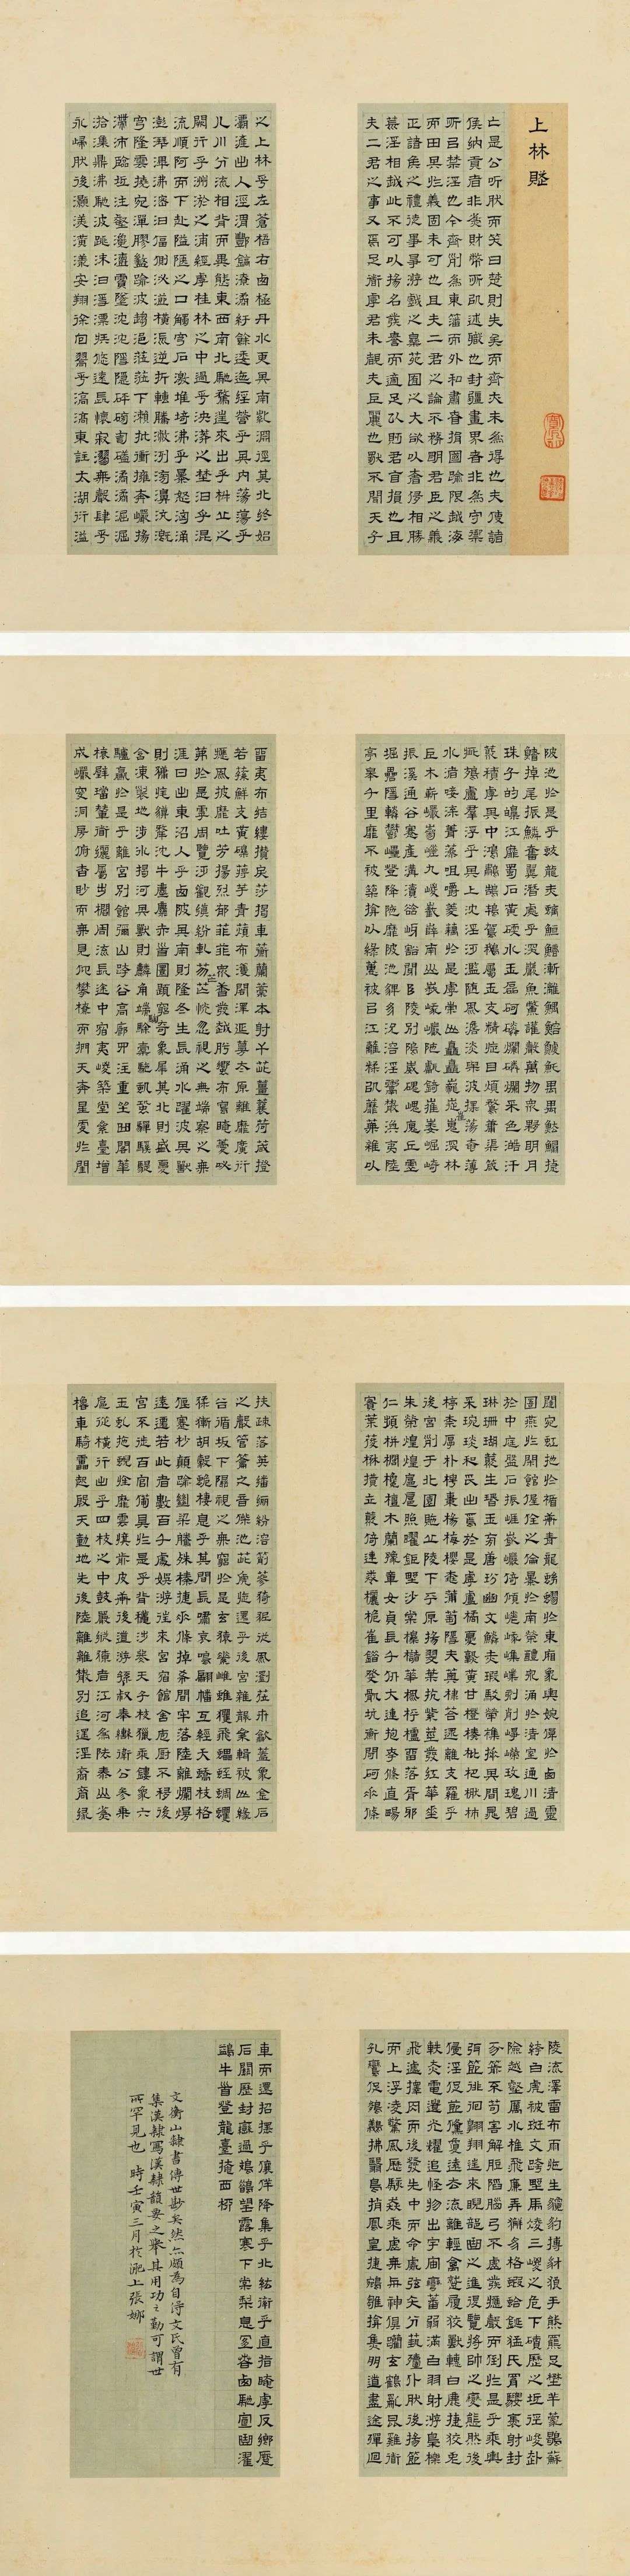 上林賦
亡是公听然而笑曰楚則失矣而齊亦未為得也夫使諸
侯納貢者非為財幣所以述職也封疆畫界者非為守禦
所以禁淫也今齊列為東藩而外私肅眘捐國踰限越海
而田其於義固未可也且夫二君之論不務明君臣之義
正諸侯之禮徒事爭游戲之樂苑囿之大欲以奢侈相勝
荒淫相越此不可以揚名發譽而適足以貶君自損也且
夫二君之事又焉足道虖君未覩夫巨麗也獨不聞天子
之上林乎左蒼梧右西極丹水更其南紫淵徑其北終始
灞滻出入涇渭酆鎬潦潏紆餘逶迤經營乎其內蕩蕩乎
八川分流相背而異態東西南北馳騖往來出乎椒丘之
闕行乎洲淤之浦經虖桂林之中過乎泱漭之壄汩乎混
流順阿而下赴隘陿之口觸穹石激堆埼沸乎暴怒洶涌
澎湃滭沸滵汩偪側泌瀄橫流逆折轉騰潎洌滂濞沆溉
穹隆雲橈宛潬膠盭踰波趨浥蒞蒞下瀨批衝擁奔巖揚
滯沛臨坻注壑瀺灂霣墜沈沈隱隱砰磅訇磕潏潏淈淈
湁潗鼎沸馳波跳沫汩㴔漂疾悠遠長懷寂漻無聲肆乎
永歸然後灝溔潢漾安翔徐回翯乎滈滈東注太湖衍溢
陂池於是乎蛟龍赤螭䱭䲛漸離鰅鰫鰬魠禺禺魼鰨揵
鰭掉尾振鱗奮翼潛處乎深巖魚鱉讙聲萬物眾夥明月
珠子的皪江靡蜀石黃碝水玉磊砢磷磷爛爛采色澔汗
藂積虖其中鴻鷫鵠鴇鴐鵝屬玉交精旋目煩鶩庸渠箴
疵鵁盧群浮乎其上沈淫泛濫隨風澹淡與波搖蕩奄薄
水渚唼喋菁藻咀嚼菱藕於是虖崇山矗矗巃嵷崔嵬深林
巨木嶄巖嵾嵯九嵕嶻嶭南山峩峩巖陁甗錡嶊崣崛崎
振溪通谷蹇產溝瀆谽呀豁閜阜陵別隝崴磈嵔廆丘虛
堀礨隱轔鬱壘登降陁靡陂池貏豸沇溶淫鬻散渙夷陸
亭皋千里靡不被築揜以綠蕙被以江蘺糅以蘼蕪雜以
留夷布結縷攢戾莎揭車衡蘭槀本射干茈薑蘘荷葴橙
若蓀鮮支黃礫蔣苧青薠布濩閎澤延曼太原離靡廣衍
應風披靡吐芳揚烈郁郁菲菲眾香發越肸蠁布寫晻薆咇
茀於是虖周覽泛觀縝紛軋芴芒芒怳忽視之無端察之無
涯日出東沼入乎西陂其南則隆冬生長涌水躍波其獸
則㺎旄貘犛沈牛麈麋赤首圜題窮奇象犀其北則盛夏
含凍裂地涉冰揭河其獸則麟角端騊駼橐駝蛩蛩驒騱駃騠
驢驘於是乎離宮別館彌山跨谷高廊四注重坐曲閣華
榱璧璫輦道纚屬步櫩周流長途中宿夷嵕築堂絫臺增
成巖突洞房俯杳眇而無見仰攀橑而捫天奔星更於閨
闥宛虹拖於楯軒青龍蚴蟉於東廂象輿婉僤於西清靈
圄燕於閒館偓佺之倫暴於南榮醴泉涌於清室通川過
於中庭盤石振崖嶔巖倚傾嵯峨嶵嵬刻削崢嶸玫瑰碧
琳珊瑚叢生琘玉旁唐玢豳文鱗赤瑕駮犖雜臿其間晁
采琬琰和氏出焉於是虖盧橘夏孰黃甘橙楱枇杷橪柿
楟柰厚朴梬棗楊梅櫻桃蒲萄隱夫薁棣荅遝離支羅乎
後宮列于北園貤丘陵下平原揚翠葉杌紫莖發紅華垂
朱榮煌煌扈扈照曜鉅野沙棠櫟櫧華楓枰櫨留落胥邪
仁頻并閭欃檀木蘭豫章女貞長千仞大連抱夸條直暢
實葉葰楙攢立叢倚連卷欐佹崔錯癹骫坑衡閜砢垂條
扶疎落英幡纚紛溶箾蔘猗狔從風藰莅卉歙蓋象金石
之聲管籥之音偨池茈虒旋還乎後宮雜襲絫輯被山緣
谷循坂下隰視之無窮於是玄猨素雌蜼玃飛蠝蛭蜩蠼
猱獑胡豰蛫棲息乎其間長嘯哀鳴翩幡互經夭蟜枝格
偃蹇杪顛踰絕梁騰殊榛捷垂條掉希間牢落陸離爛漫
遠遷若此者數百千處娛游往來宮宿館舍庖厨不移後
宮不徙百官備具於是乎背秋涉冬天子校獵乘鏤象六
玉虯拖蜺旌靡雲旗前皮軒後道游孫叔奉轡衛公參乘
扈從橫行出乎四校之中鼓嚴縱獵者江河為阹泰山為
櫓車騎靁起殷天動地先後陸離離散別追淫淫裔裔緣
陵流澤雲布雨施生貔豹搏豺狼手熊羆足壄羊蒙鶡蘇
絝白虎被斑文跨壄馬凌三嵕之危下磧歷之坻徑峻赴
險越壑厲水椎飛廉弄獬豸格蝦蛤鋋猛氏羂騕褭射封
豕箭不苟害解脰陷腦弓不虛發應聲而倒於是乎乘輿
弭節徘徊翱翔往來睨部曲之進退覽將帥之變態然後
侵淫促節儵敻遠去流離輕禽蹵履狡獸轊白鹿捷狡兔
軼赤電遺光耀追怪物出宇宙彎蕃弱滿白羽射游梟櫟
飛遽擇肉而後發先中而命處弦矢分藝殪仆然後揚節
而上浮凌驚風歷駭猋乘虛無與神俱躪玄鶴亂昆雞遒
孔鸞促鵕鸃拂翳鳥捎鳳皇捷鵷雛揜焦明道盡途殫迴
車而還招搖乎儴佯降集乎北紘率乎直指晻虖反鄉蹷
石闕歷封巒過鳷鵲望露寒下棠梨息宜春西馳宣曲濯
鷁牛首登龍臺掩西柳
文衡山隸書傳世尟矣然亦頗為自得文氏曾有
集漢隸寫漢隸韻要之舉其用功之勤可謂世
所罕見也 時壬寅三月於滬上張娜